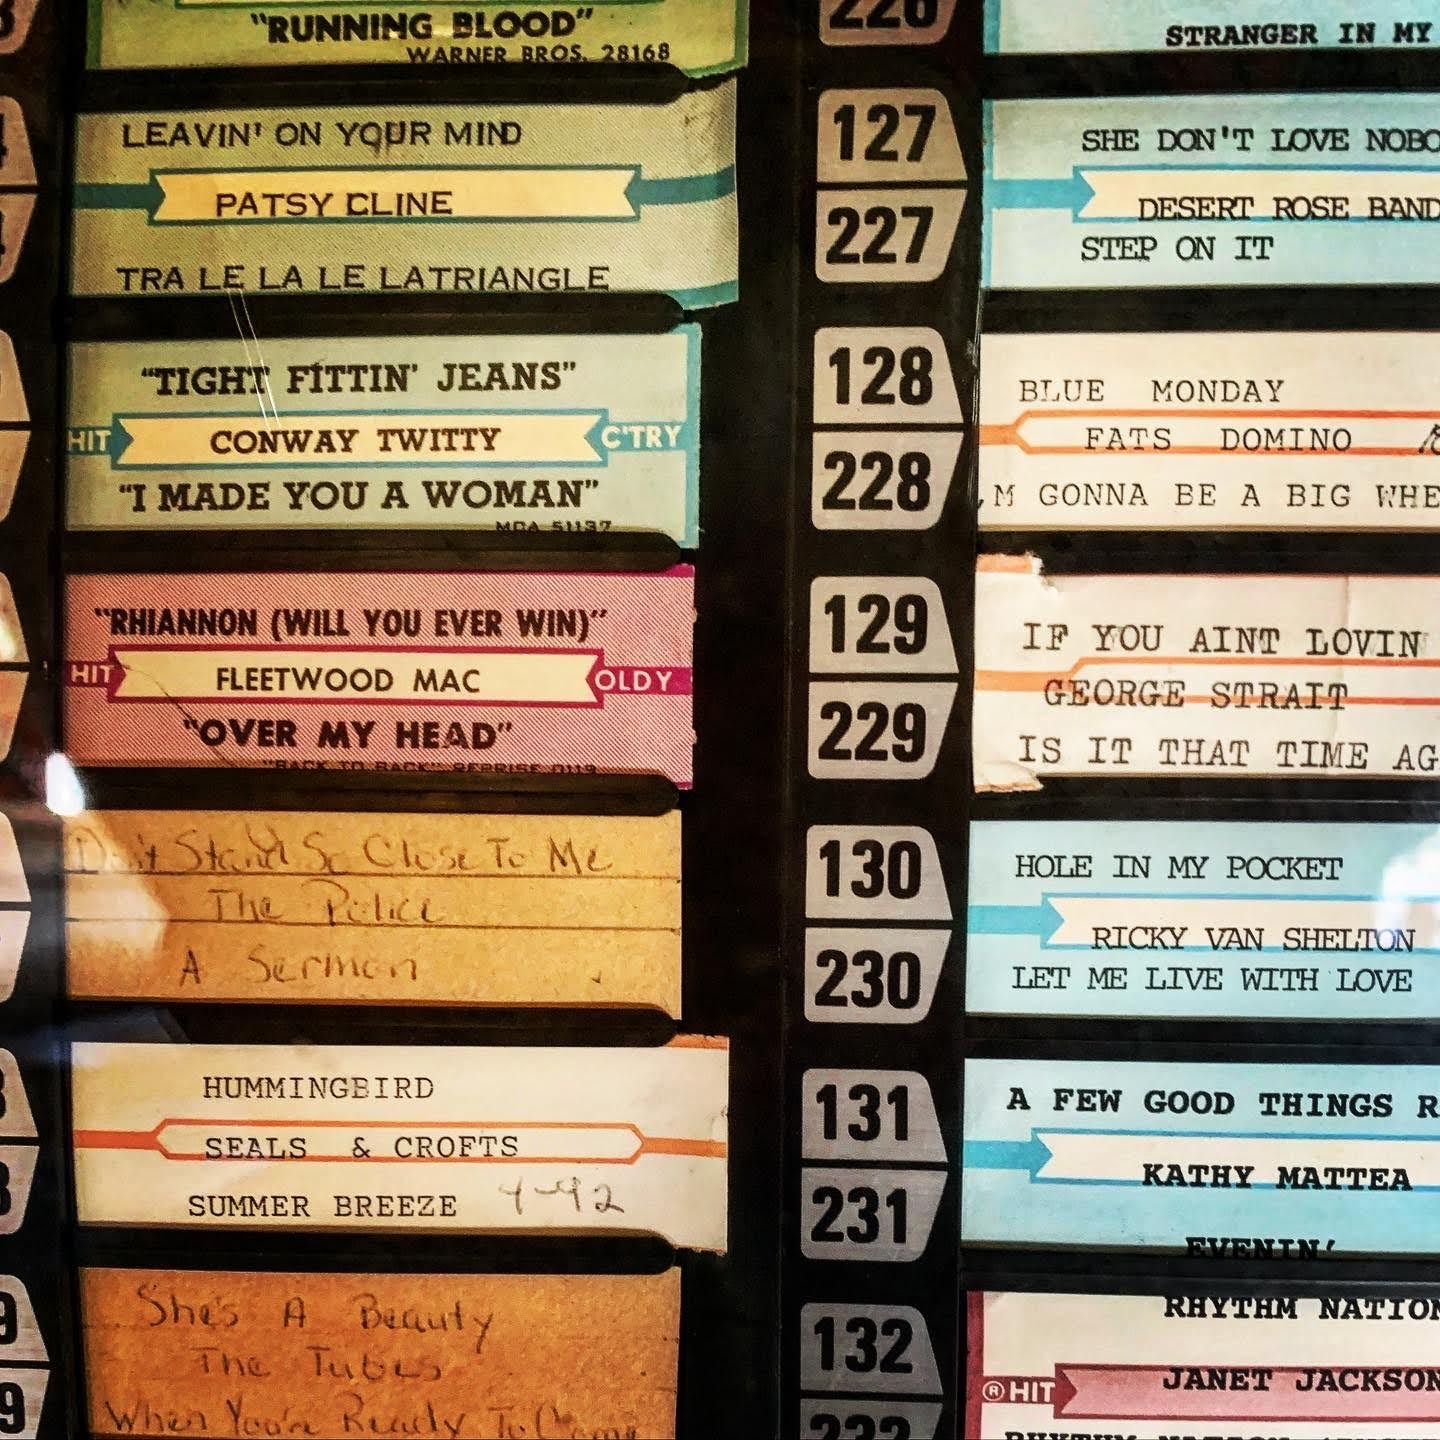 "RUNNING BLOOD"
WARNER BROS. 28168
LEAVIN' ON YOUR MIND
PATSY CLINE
TRA LE LA LE LATRIANGLE
"TIGHT FITTIN' JEANS"
HIT CONWAY TWITTY C'TRY
"I MADE YOU A WOMAN"
MCA 51137
"RHIANNON (WILL YOU EVER WIN)"
HIT FLEETWOOD MAC OLDY
"OVER MY HEAD"
"BACK TO BACK" REPRISE 0119
Don't Stand So Close To Me
The Police
A Sermon
HUMMINGBIRD
SEALS & CROFTS
SUMMER BREEZE 4-92
She's A Beauty
The Tubes
When You're Ready To Come
226
STRANGER IN MY
127
227
SHE DON'T LOVE NOBO
DESERT ROSE BAND
STEP ON IT
128
228
BLUE MONDAY
FATS DOMINO
,M GONNA BE A BIG WHE
129
229
IF YOU AINT LOVIN
GEORGE STRAIT
IS IT THAT TIME AG
130
230
HOLE IN MY POCKET
RICKY VAN SHELTON
LET ME LIVE WITH LOVE
131
231
A FEW GOOD THINGS R
KATHY MATTEA
EVENIN'
132
232
RHYTHM NATION
® HIT JANET JACKSON
RHYTHM NATION